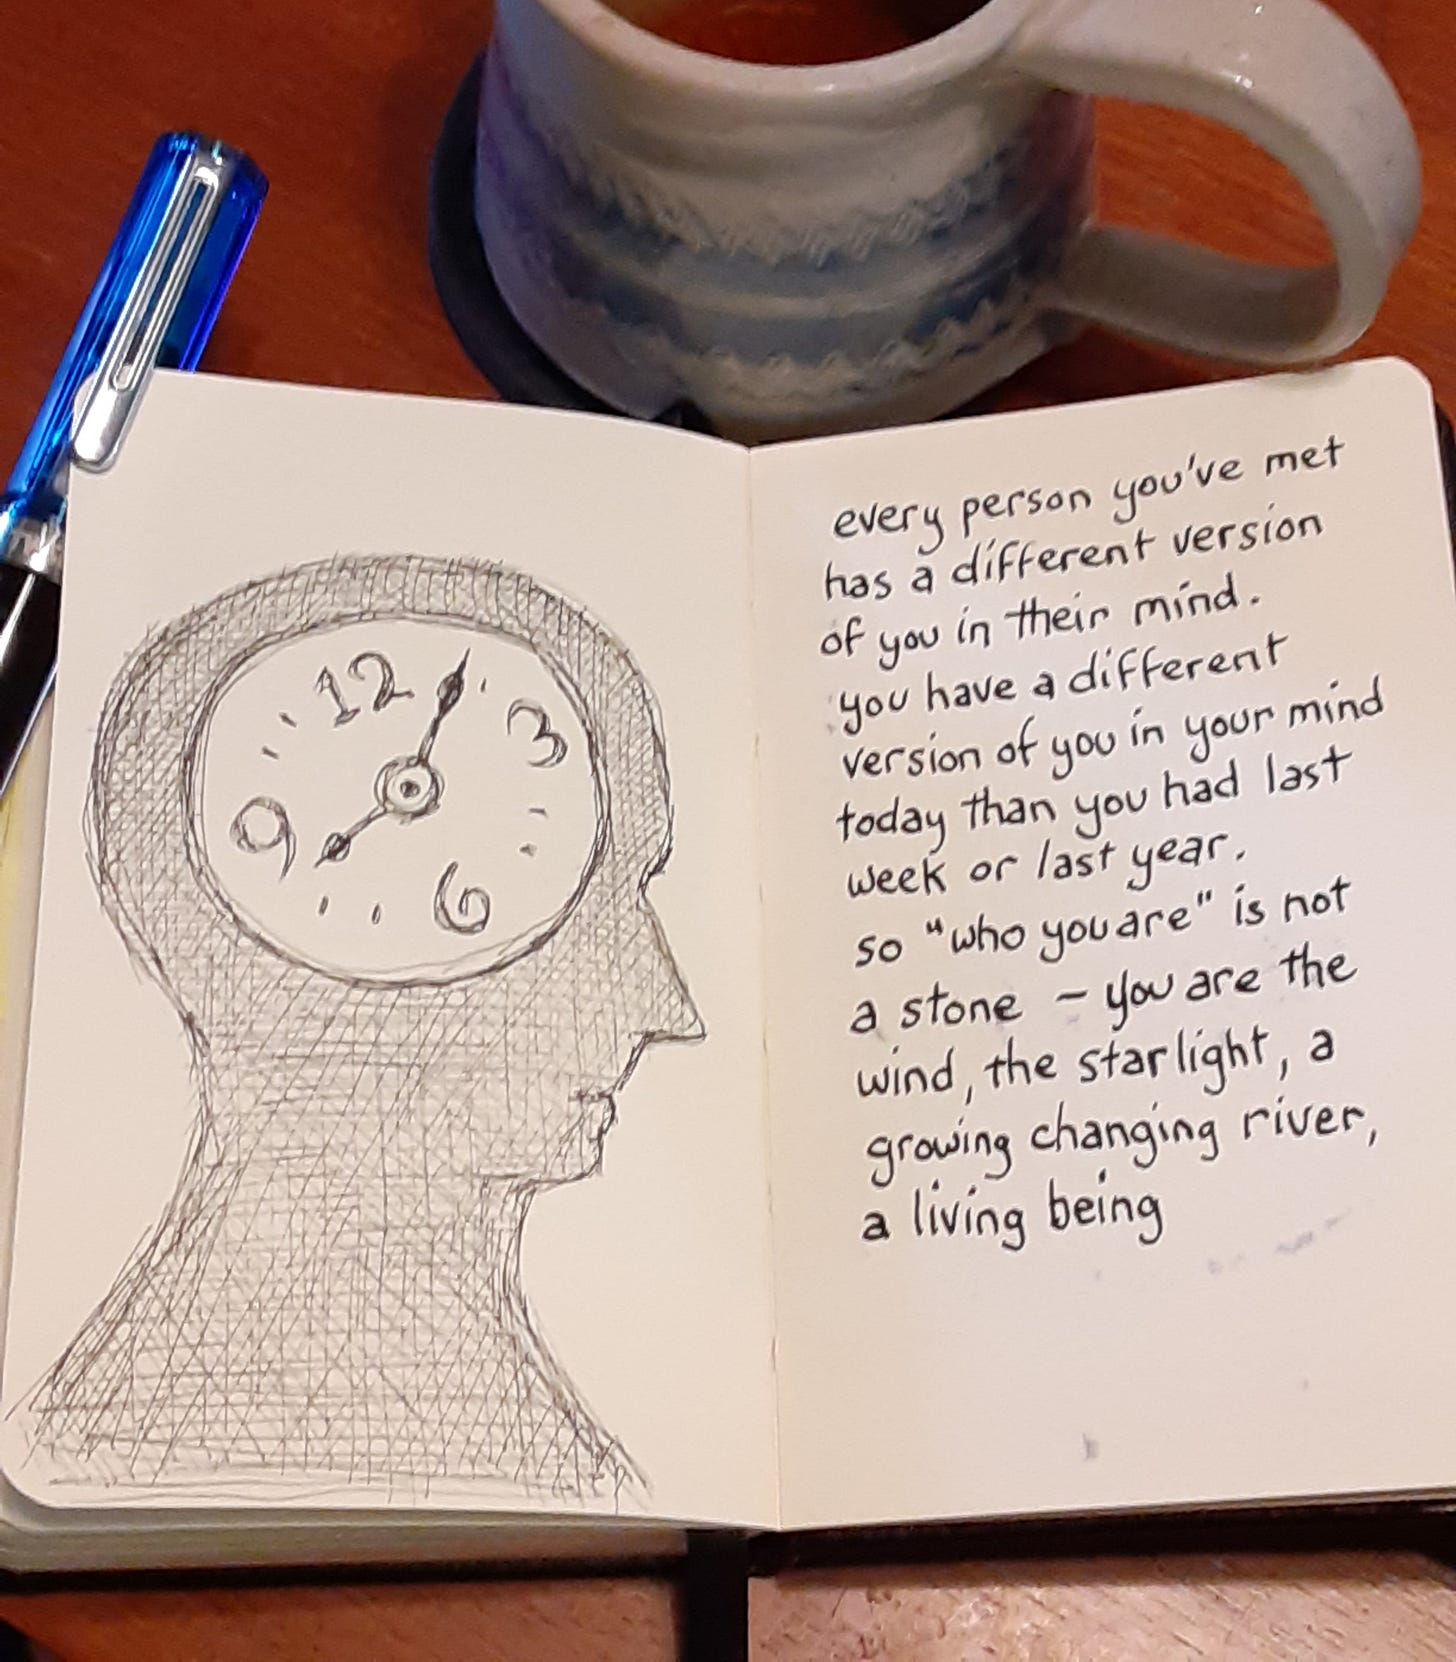 12
3
9
6
every person you've met
has a different version
of you in their mind.
you have a different
version of you in your mind
today than you had last
week or last year.
so "who you are" is not
a stone – you are the
wind, the starlight, a
growing changing river,
a living being